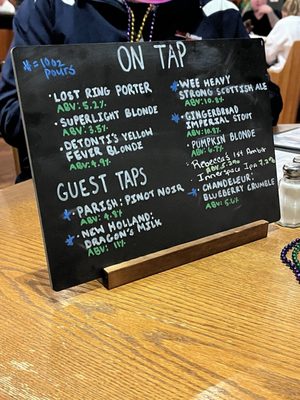 ON TAP
* = 10oz pours
· LOST RING PORTER
ABV: 5.2%
· SUPERLIGHT BLONDE
ABV: 3.5%
· DETONTI'S YELLOW
FEVER BLONDE
ABV: 4.9%
GUEST TAPS
* PARISH: PINOT NOIR
ABV: 4.8%
* NEW HOLLAND:
DRAGON'S MILK
ABV: 11%
* WEE HEAVY
STRONG SCOTTISH ALE
ABV: 10.8%
* GINGERBREAD
IMPERIAL STOUT
ABV: 10.8%
· PUMPKIN BLONDE
ABV: 4.7%
1st Amber
Innerspace Ipa 7.3%
· CHANDELEUR:
BLUEBERRY CRUMBLE
ABV: 5.6%